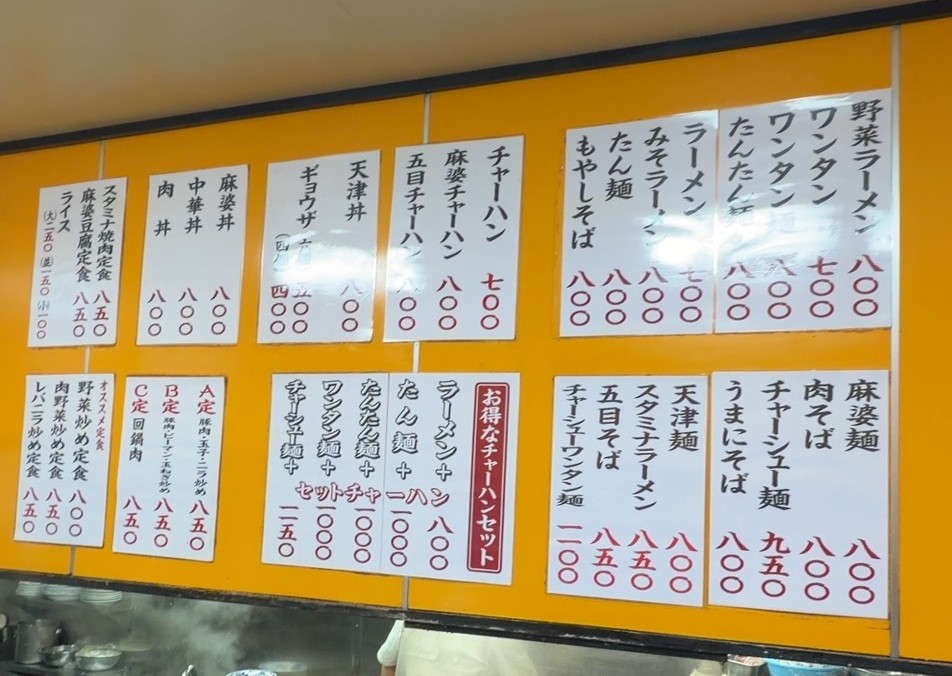 野菜ラーメン 八〇〇
ワンタン 七〇〇
ワンタン麺 八〇〇
たんたん麺 八〇〇
ラーメン 七〇〇
みそラーメン 八〇〇
たん麺 八〇〇
もやしそば 八〇〇
チャーハン 七〇〇
麻婆チャーハン 八〇〇
五目チャーハン 八〇〇
天津丼 八〇〇
ギョウザ 五〇〇
四〇〇
麻婆丼 八〇〇
中華丼 八〇〇
肉丼 八〇〇
スタミナ焼肉定食 八五〇
麻婆豆腐定食 八五〇
ライス
(大)二五〇 (並)一五〇 (小)一〇〇
麻婆麺 八〇〇
肉そば 八〇〇
チャーシュー麺 九五〇
うまにそば 八〇〇
天津麺 八〇〇
スタミナラーメン 八五〇
五目そば 八五〇
チャーシューワンタン麺 一一〇〇
お得なチャーハンセット
ラーメン+ 八〇〇
たん麺+ 一〇〇〇
たんたん麺+ 一〇〇〇
ワンタン麺+ 一〇〇〇
チャーシュー麺+ 一一五〇
セットチャーハン
A定 豚肉・玉子・ニラ炒め 八五〇
B定 豚肉・ピーマン・玉ねぎ炒め 八五〇
C定 回鍋肉 八五〇
オススメ定食
野菜炒め定食 八〇〇
肉野菜炒め定食 八五〇
レバニラ炒め定食 八五〇